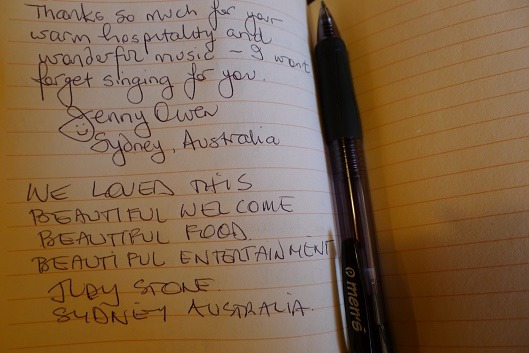 Thanks so much for your
warm hospitality and
wonderful music - I wont
forget singing for you.
Jenny Owen
Sydney, Australia
WE LOVED THIS
BEAUTIFUL WELCOME
BEAUTIFUL FOOD
BEAUTIFUL ENTERTAINMENT
JUDY STONE.
SYDNEY AUSTRALIA.
men's